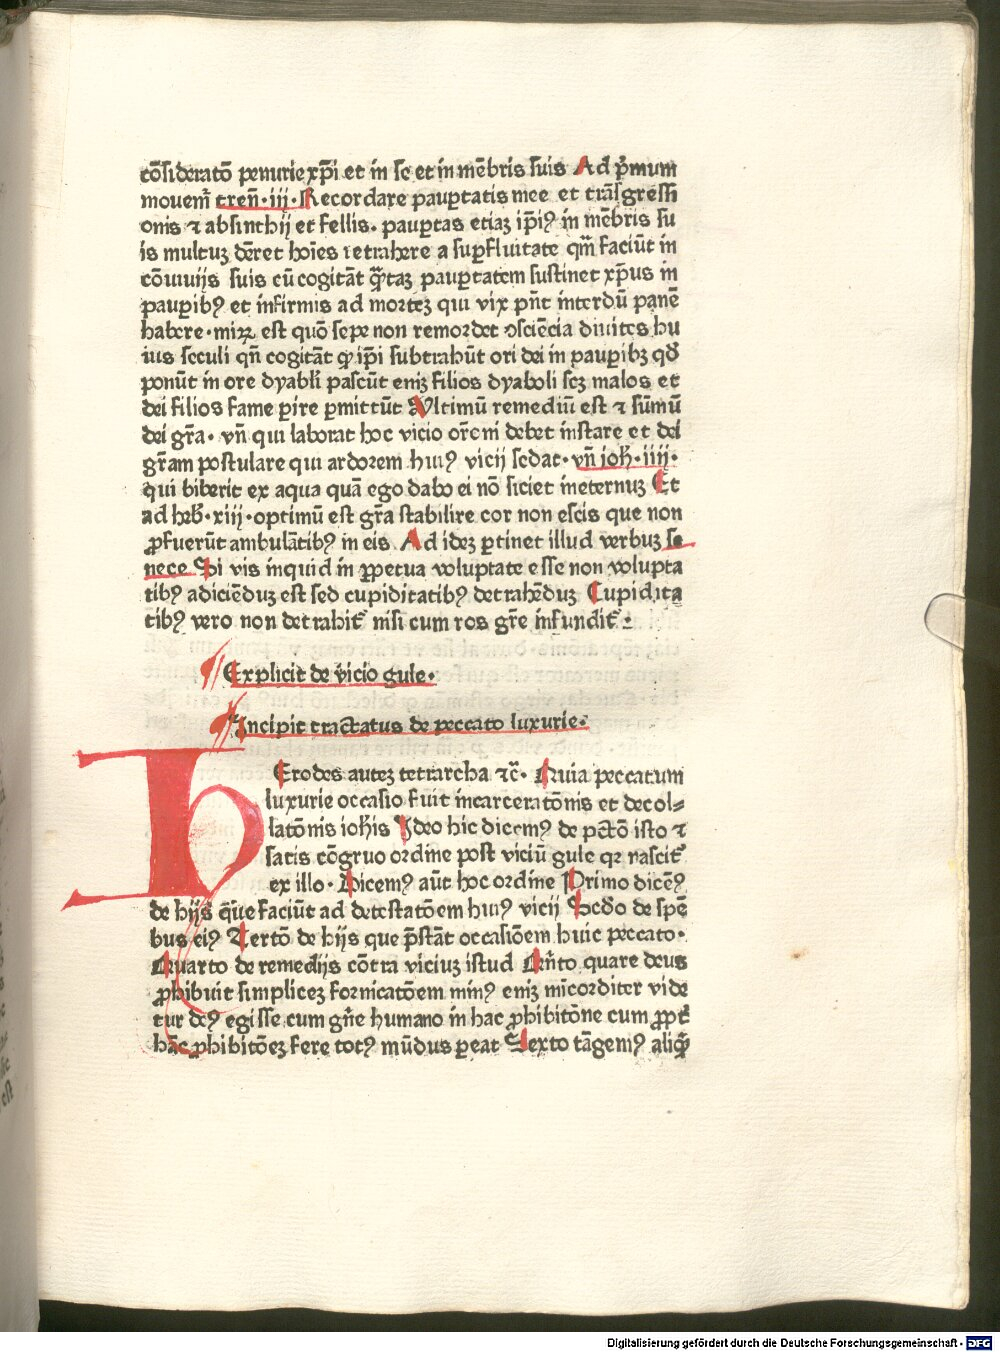 cōsideratō penurie xp̄i et in se et in mēbris suis Ad pͥmum
mouemr̄ tren̄·iij·Recordare paup̱tatis mee et trāsgressi
onis ⁊ absinthij et fellis· paup̱tas etiaꝫ ip̄iꝰ in mēbris su
is multuꝫ dēret hoīes retrahere a sup̱fluitate qm̄ faciūt in
cōuiuijs suis cū cogitāt qᷓtaꝫ paup̱tatem sustinet xp̄us in
paup̱ibꝰ et infirmis ad morteꝫ qui vix pn̄t interdū panē
habere·miꝝ est quō sepe non remordet ꝯsciēcia diuites hu
ius seculi qn̄ cogitāt ꝙ ip̄i subtrahūt ori dei in paup̱ibꝫ qđ
ponūt in ore dyaboli pascūt eniꝫ filios dyaboli scꝫ malos et
dei filios fame p̱ire p̱mittūt Vltimū remediū est ⁊ sūmū
dei gr̄a· vn̄ qui laborat hoc vicio orōni debet instare et dei
gr̄am postulare qui ardorem huiꝰ vicij sedat·vn̄ ioh̄·iiij·
qui biberit ex aqua quā ego dabo ei nō siciet ineternuꝫ Et
ad heb̄·xiij·optimū est gr̄a stabilire cor non escis que non
ꝓfuerūt ambulātibꝰ in eis· Ad ideꝫ p̱tinet illud verbuꝫ se
nece Si vis inquid in ꝑpetua voluptate esse non volupta
tibꝰ adiciēduꝫ est sed cupiditatibꝰ detrahēduꝫ Cupidita
tibꝰ vero non detrahit̄ nisi cum ros gr̄e infundit̄·
Explicit de vicio gule·
Incipit tractatus de peccato luxurie·
HErodes auteꝫ tetrarcha ⁊c̄· Quia peccatum
luxurie occasio fuit incarceratōnis et decol⸗
latōnis ioh̄is Ideo hic dicemꝰ de pctō isto ⁊
satis cōgruo ordine post viciū gule qꝛ nascit̄
ex illo· Dicemꝰ aūt hoc ordine Primo dicēꝰ
de hijs q̄ faciūt ad detestatōem huiꝰ vicij Scđo de spē
bus eiꝰ Tertō de hijs que p̄stāt occasiōem huic peccato·
Quarto de remedijs cōtra viciuꝫ istud Qn̄to quare deus
ꝓhibuit simpliceꝫ fornicatōem minꝰ eniꝫ mīcorditer vide
tur deꝰ egisse cum gn̄e humano in hac ꝓhibitōne cum ꝓpt̄
hāc ꝓhibitōeꝫ fere totꝰ mūdus p̱eat Sexto tāgemꝰ aliqᷓ
Digitalisierung gefördert durch die Deutsche Forschungsgemeinschaft - DFG